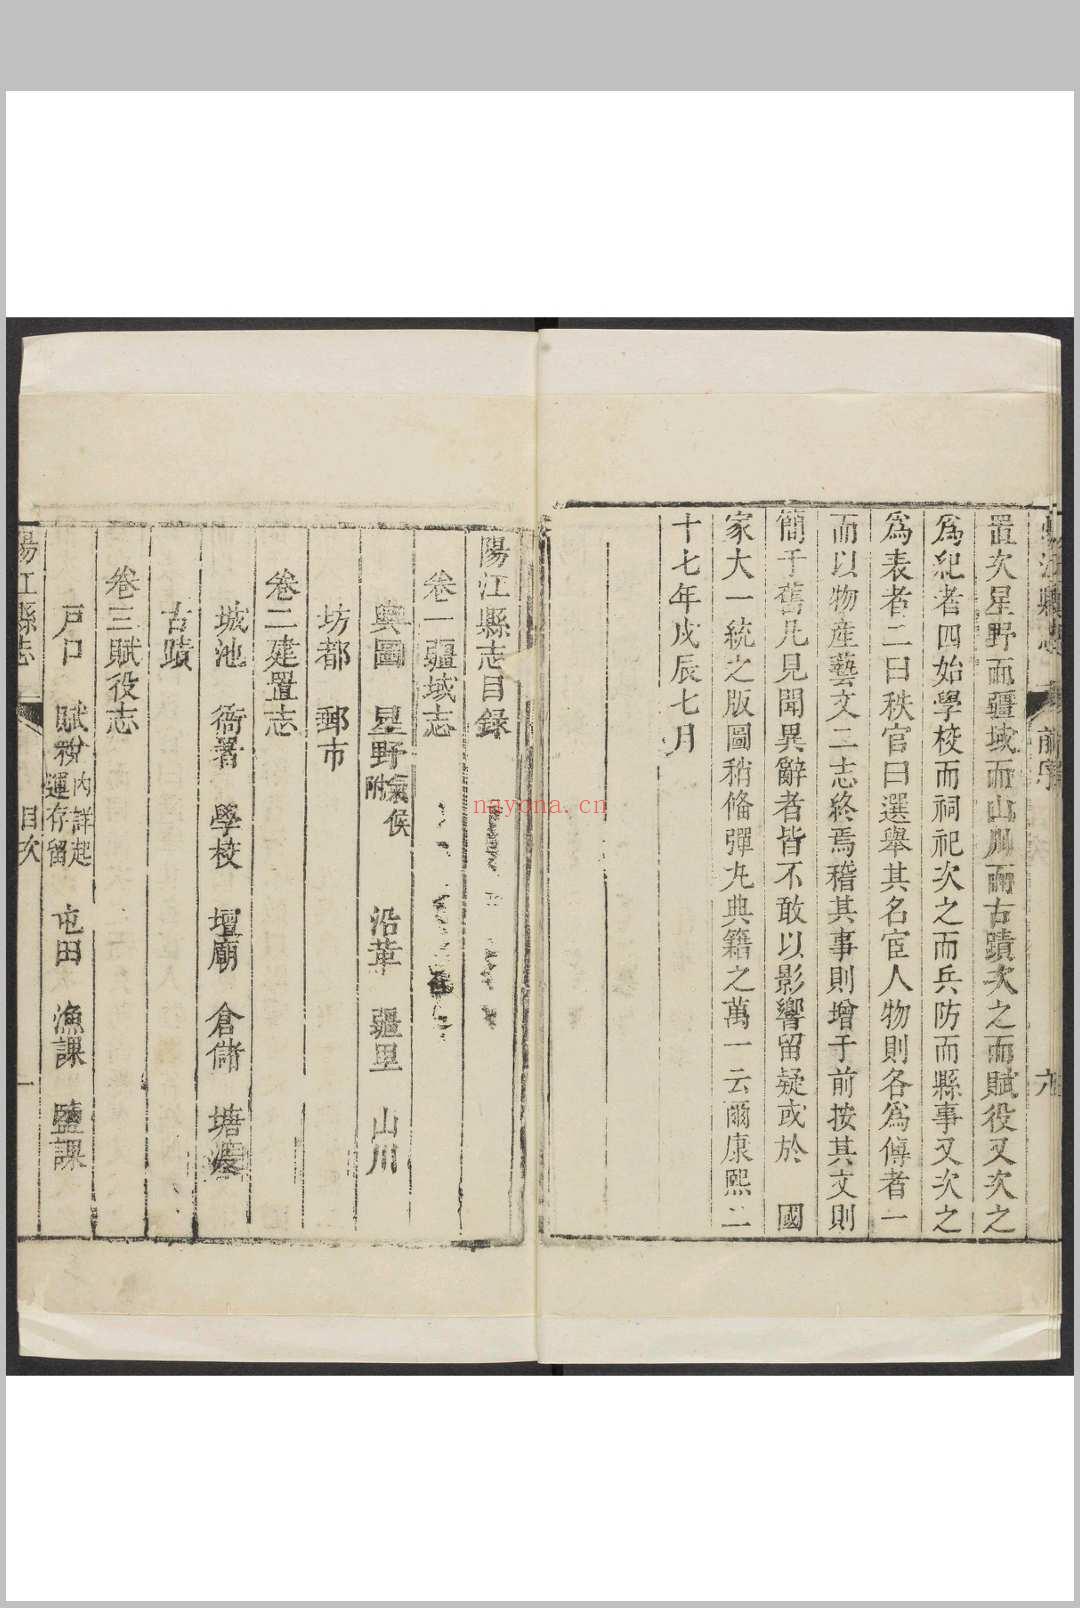 陽江縣志
前序
置次星野而疆域而山川而古蹟次之而賦役又次之
爲紀者四始學校而祠祀次之而兵防而縣事又次之
爲表者二曰秩官曰選舉其名宦人物則各爲傳者一
而以物產藝文二志終焉稽其事則增于前按其文則
簡于舊凡見聞異辭者皆不敢以影響留疑或於　國
家大一統之版圖稍俻彈丸典籍之萬一云爾康熙二
十七年戊辰七月
陽江縣志目録
卷一疆域志
輿圖　星野氣候附　沿革　疆里　山川
坊都　鄉市
卷二建置志
城池　衙署　學校　壇廟　倉儲　塘渡
古蹟
卷三賦役志
戸口　賦稅内詳起運存留　屯田　漁課　鹽課
陽江縣志　目次　一
nayona.cn